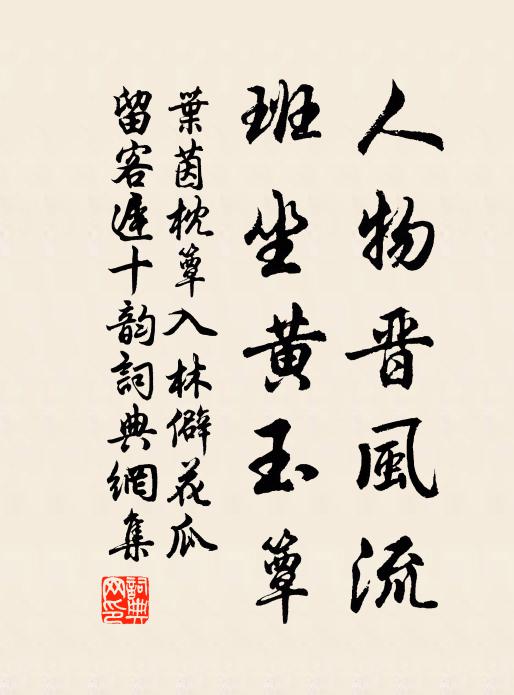 人物晋風流
班坐黄玉簟
葉茵枕簟入林僻花瓜
留客遲十韵詞典網集
詞典網印